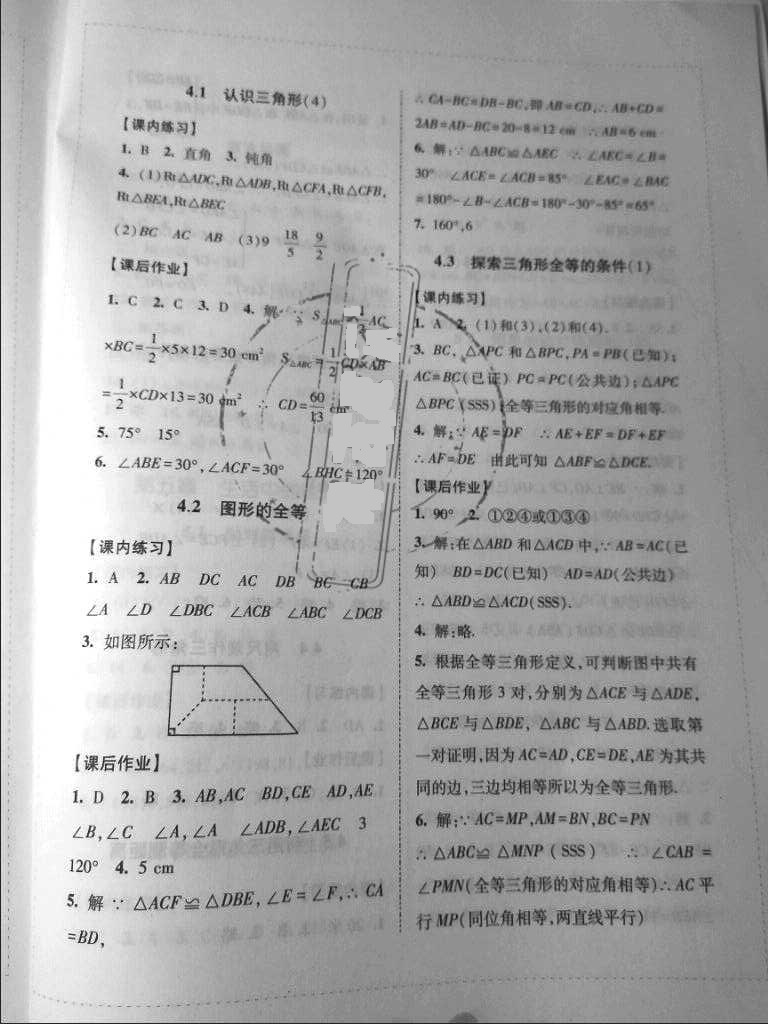 4.1 认识三角形(4)
【课内练习】
1. B 2. 直角 3. 钝角
4. (1)Rt△ADC,Rt△ADB,Rt△CFA,Rt△CFB,
Rt△BEA,Rt△BEC
(2)BC AC AB (3)9 18/5 9/2
【课后作业】
1. C 2. C 3. D 4. 解:∵ S△ABC=1/2 AC
×BC=1/2×5×12=30 cm² S△ABC=1/2 CD×AB
=1/2×CD×13=30 cm² ∴ CD=60/13 cm
5. 75° 15°
6. ∠ABE=30°,∠ACF=30° ∠BHC=120°
4.2 图形的全等
【课内练习】
1. A 2. AB DC AC DB BC CB
∠A ∠D ∠DBC ∠ACB ∠ABC ∠DCB
3. 如图所示:
【课后作业】
1. D 2. B 3. AB,AC BD,CE AD,AE
∠B,∠C ∠A,∠A ∠ADB,∠AEC 3
120° 4. 5 cm
5. 解 ∵ △ACF≌△DBE,∠E=∠F,∴ CA
=BD,
∴ CA-BC=DB-BC,即 AB=CD,∴ AB+CD=
2AB=AD-BC=20-8=12 cm ∴ AB=6 cm
6. 解:∵ △ABC≌△AEC ∴ ∠AEC=∠B=
30° ∠ACE=∠ACB=85° ∠EAC=∠BAC
=180°-∠B-∠ACB=180°-30°-85°=65°
7. 160°,6
4.3 探索三角形全等的条件(1)
【课内练习】
1. A 2. (1)和(3),(2)和(4).
3. BC, △APC 和△BPC,PA=PB(已知);
AC=BC(已证) PC=PC(公共边);△APC
△BPC (SSS) 全等三角形的对应角相等.
4. 解:∵ AE=DF ∴ AE+EF=DF+EF
∴ AF=DE 由此可知 △ABF≌△DCE.
【课后作业】
1. 90° 2. ①②④或①③④
3. 解:在△ABD 和△ACD 中,∵ AB=AC(已
知) BD=DC(已知) AD=AD(公共边)
∴ △ABD≌△ACD(SSS).
4. 解:略.
5. 根据全等三角形定义,可判断图中共有
全等三角形 3 对,分别为△ACE 与△ADE,
△BCE 与△BDE, △ABC 与△ABD. 选取第
一对证明,因为 AC=AD,CE=DE,AE 为其共
同的边,三边均相等所以为全等三角形.
6. 解:∵ AC=MP,AM=BN,BC=PN
∴ △ABC≌ △MNP (SSS) ∴ ∠CAB =
∠PMN(全等三角形的对应角相等)∴ AC 平
行 MP(同位角相等,两直线平行)